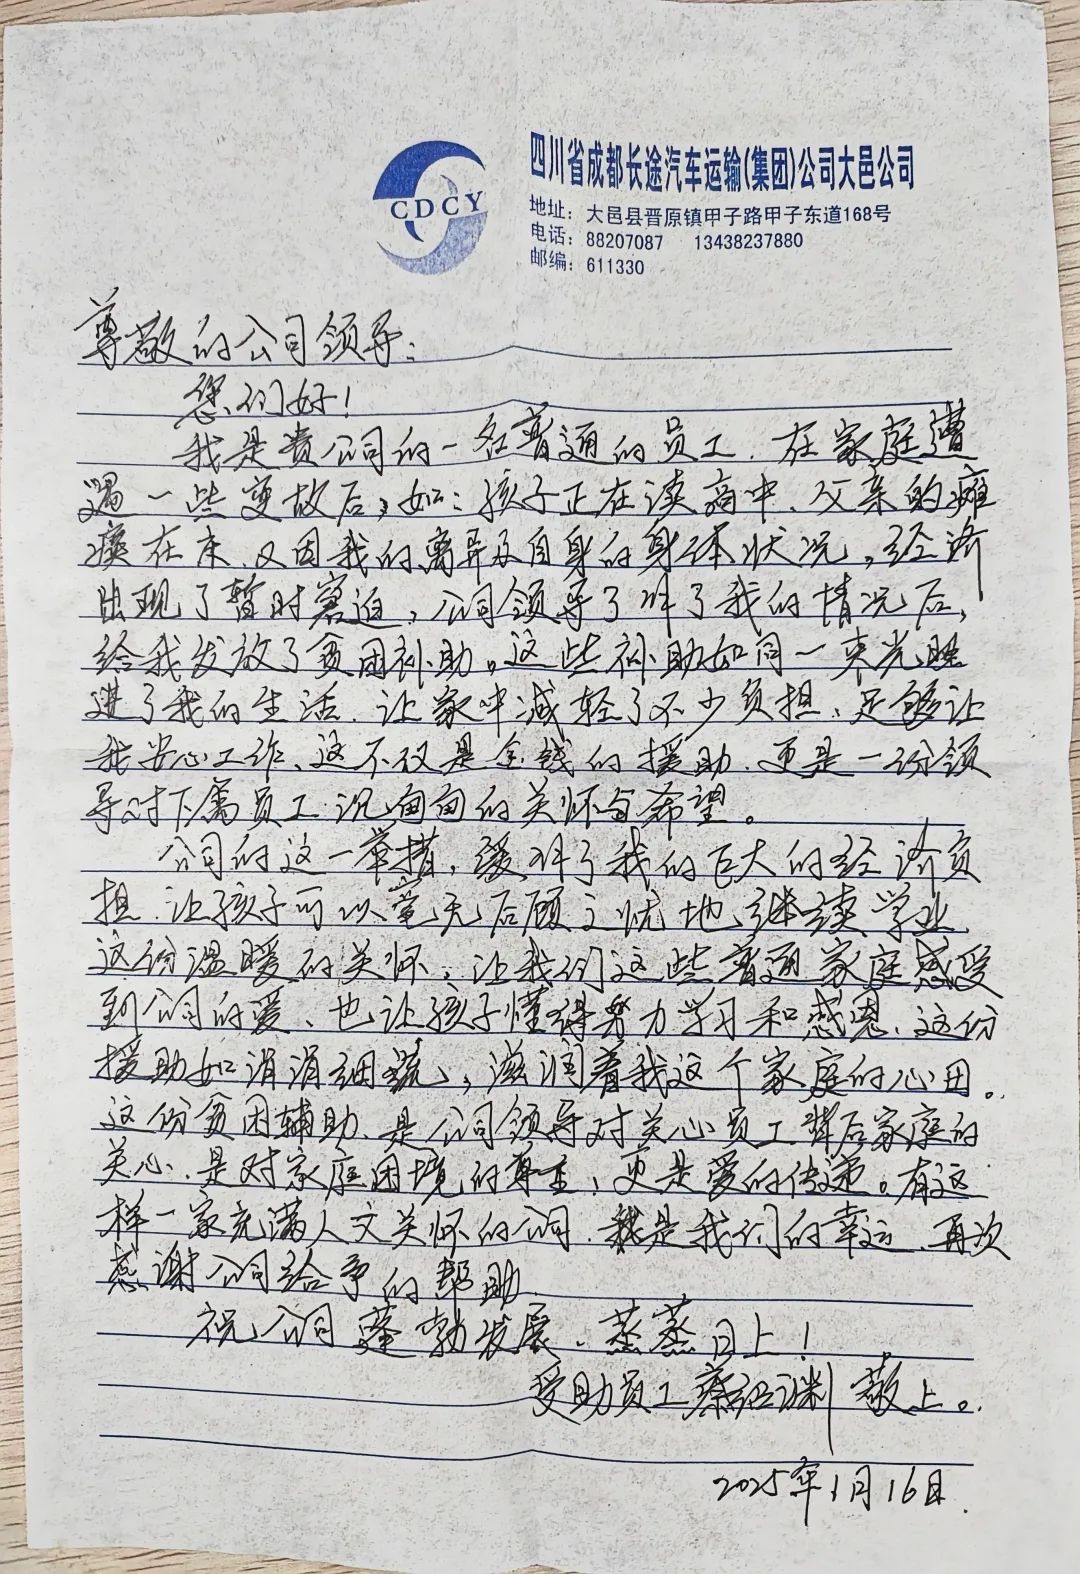 CDCY
四川省成都长途汽车运输(集团)公司大邑公司
地址：大邑县晋原镇甲子路甲子东道168号
电话：88207087 13438237880
邮编：611330
尊敬的公司领导：
您们好！
我是贵公司的一名普通的员工，在家庭遭
遇一些变故后，如：孩子正在读高中、父亲的瘫
痪在床、又因我的离异及自身的身体状况，经济
出现了暂时窘迫，公司领导了解了我的情况后，
给我发放了贫困补助。这些补助如同一束光照
进了我的生活，让家中减轻了不少负担，足够让
我安心工作、这不仅是金钱的援助，更是一份领
导对下属员工沉甸甸的关怀与希望。
公司的这一举措，缓解了我的巨大的经济负
担，让孩子可以毫无后顾之忧地继续学业，
这份温暖的关怀，让我们这些普通家庭感受
到公司的爱、也让孩子懂得努力学习和感恩，这份
援助如涓涓细流，滋润着我这个家庭的心田。
这份贫困辅助、是公司领导对关心员工背后家庭的
关心、是对家庭困境的尊重，更是爱的传递。有这
样一家充满人文关怀的公司，我是我们的幸运，再次
感谢公司给予的帮助
祝公司蓬勃发展、蒸蒸日上！
受助员工 敬上。
2025年1月16日.